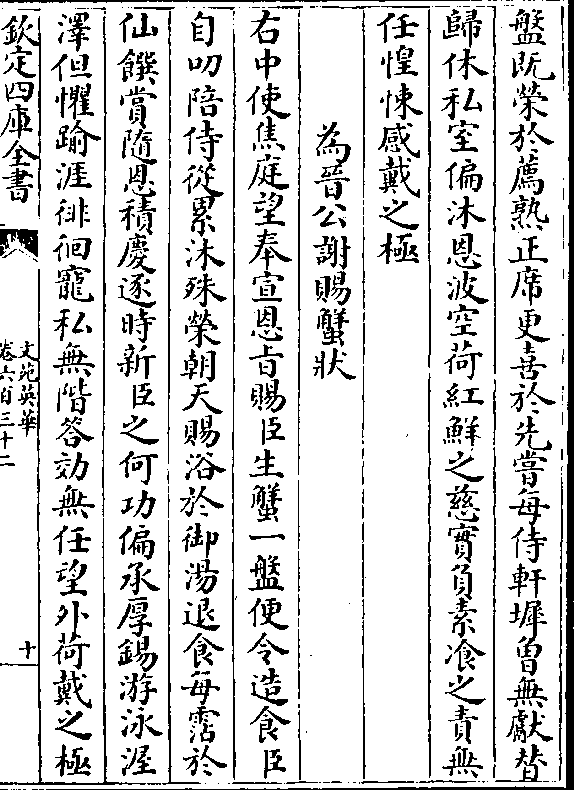 盤既榮於薦熟正席更喜於先嘗每侍軒墀曽無獻替
歸休私室偏沐恩波空荷紅鮮之慈實負素飡之責無
任惶悚感戴之極
為晉公謝賜蟹狀
右中使焦庭望奉宣恩旨賜臣生蟹一盤便令造食臣
自叨陪侍從累沐殊榮朝天賜浴於御湯退食每霑於
仙饌賞隨恩積慶逐時新臣之何功偏承厚錫游泳渥
澤但懼踰涯徘徊寵私無階答効無任望外荷戴之極
欽定四庫全書
文苑英華
卷六百三十二
十